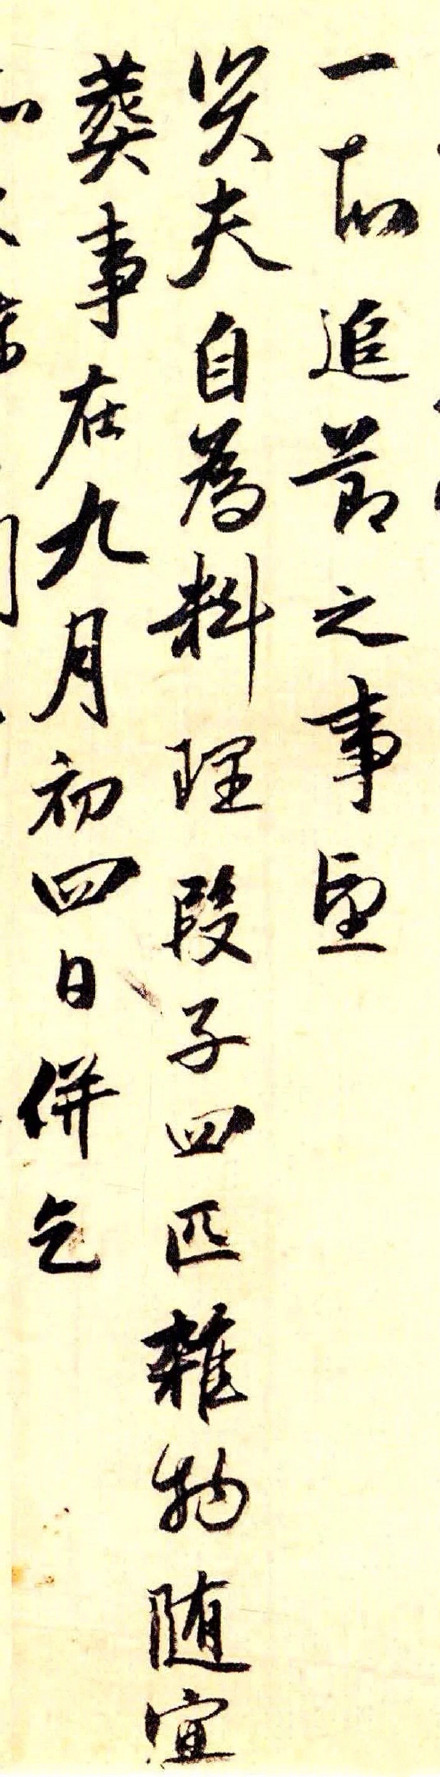 一追節之事望
夫自為料理段子四匹雜物随宜
葬事在九月初四日併乞